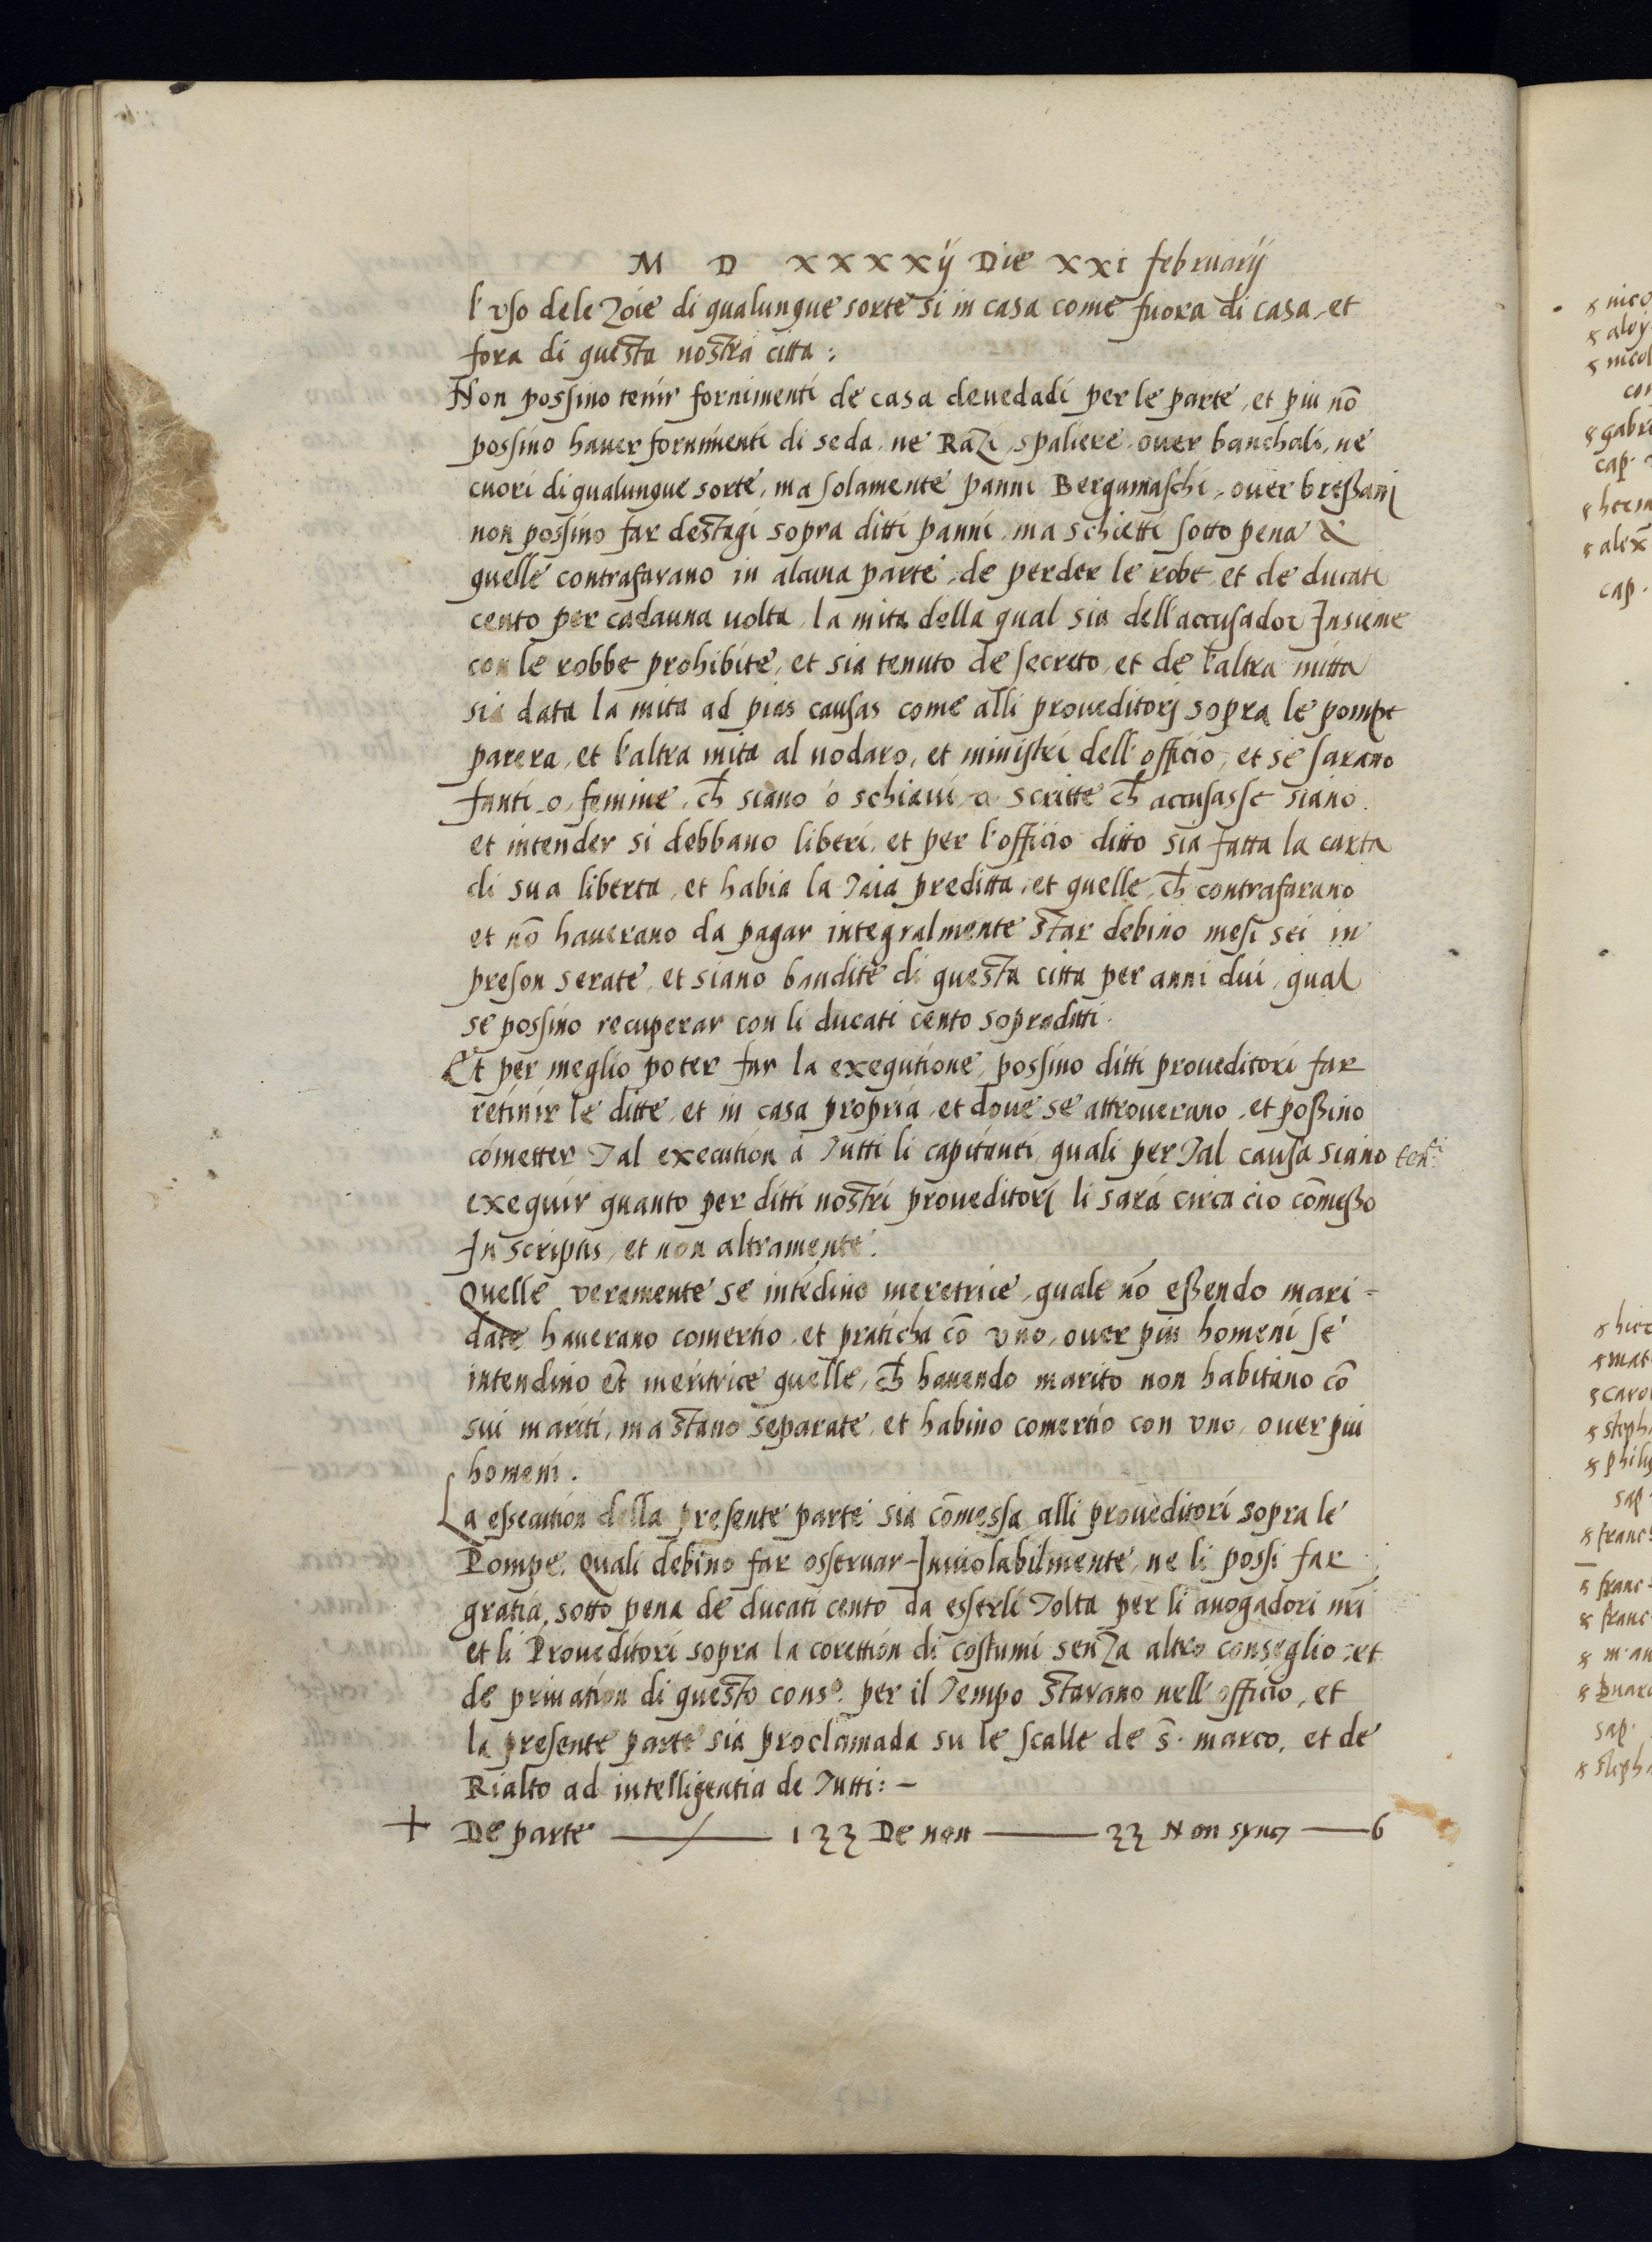 M D XXXXij Die XXi februarij
l'uso dele Zoie di qualunque sorte si in casa come fuora di casa, et
fora di questa nostra citta:
Non possino tenir fornimenti de casa devedadi per le parte, et piu nō
possino haver fornimenti di seda, ne Razi, spaliere, over banchali, ne
cuori di qualunque sorte, ma solamente panni Bergamaschi, over breßani
non possino far destagi sopra ditti panni, ma schietti sotto pena a
quelle contrafarano in alcuna parte, de perder le robe, et de ducati
cento per cadauna volta, la mita della qual sia dell'accusador Insieme
con le robbe prohibite, et sia tenuto de secreto, et de l'altra mitta
sia data la mita ad pias causas come alli proveditorj sopra le pompe
parera, et l'altra mita al nodaro, et ministri dell'officio, et se sarano
fanti, o, femine, ch̄ siano o schiavi, o scritte ch̄ accusasse siano.
et intender si debbano liberi, et per l'officio ditto sia fatta la carta
di sua liberta, et habia la Taia preditta, et quelle, ch̄ contrafarano
et nō haverano da pagar integralmente star debino mesi sei in
preson serate, et siano bandite di questa citta per anni dui, qual
se possino recuperar con li ducati cento sopraditti.
Et per meglio poter far la exequtione, possino ditti proveditori far
retinir le ditte, et in casa propria, et dove se attroverano, et poßino
cōmetter Tal execution a Tutti li capitanti, quali per Tal causa siano ten.ti
exequir quanto per ditti nostri proveditorj li sará circa cio cōmeßo
In scriptis, et non altramente.
Quelle veramente se intēdino meretrice, quale nō eßendo mari-
date haverano comertio, et praticha cō uno, over piu homeni se
intendino et̄ meritrice quelle, ch̄ havendo marito non habitano cō
sui mariti, ma stano separate, et habino comertio con uno, over piu
homeni.
La essecution della presente parte sia cōmessa alli proveditori sopra le
Pompe. Quali debino far osservar Inviolabilmente, ne li possi far
gratia, sotto pena de ducati cento da esserli Tolta per li avogadori nr̄i
et li Proveditori sopra la corettion di costumi senza altro conseglio, et
de privation di questo cons.o per il Tempo starano nell'officio, et
la presente parte sia proclamada su le scalle de s̄. marco, et de
Rialto ad intelligentia de Tutti:-
+ De parte — 133 De non — 33 Non sync — 6